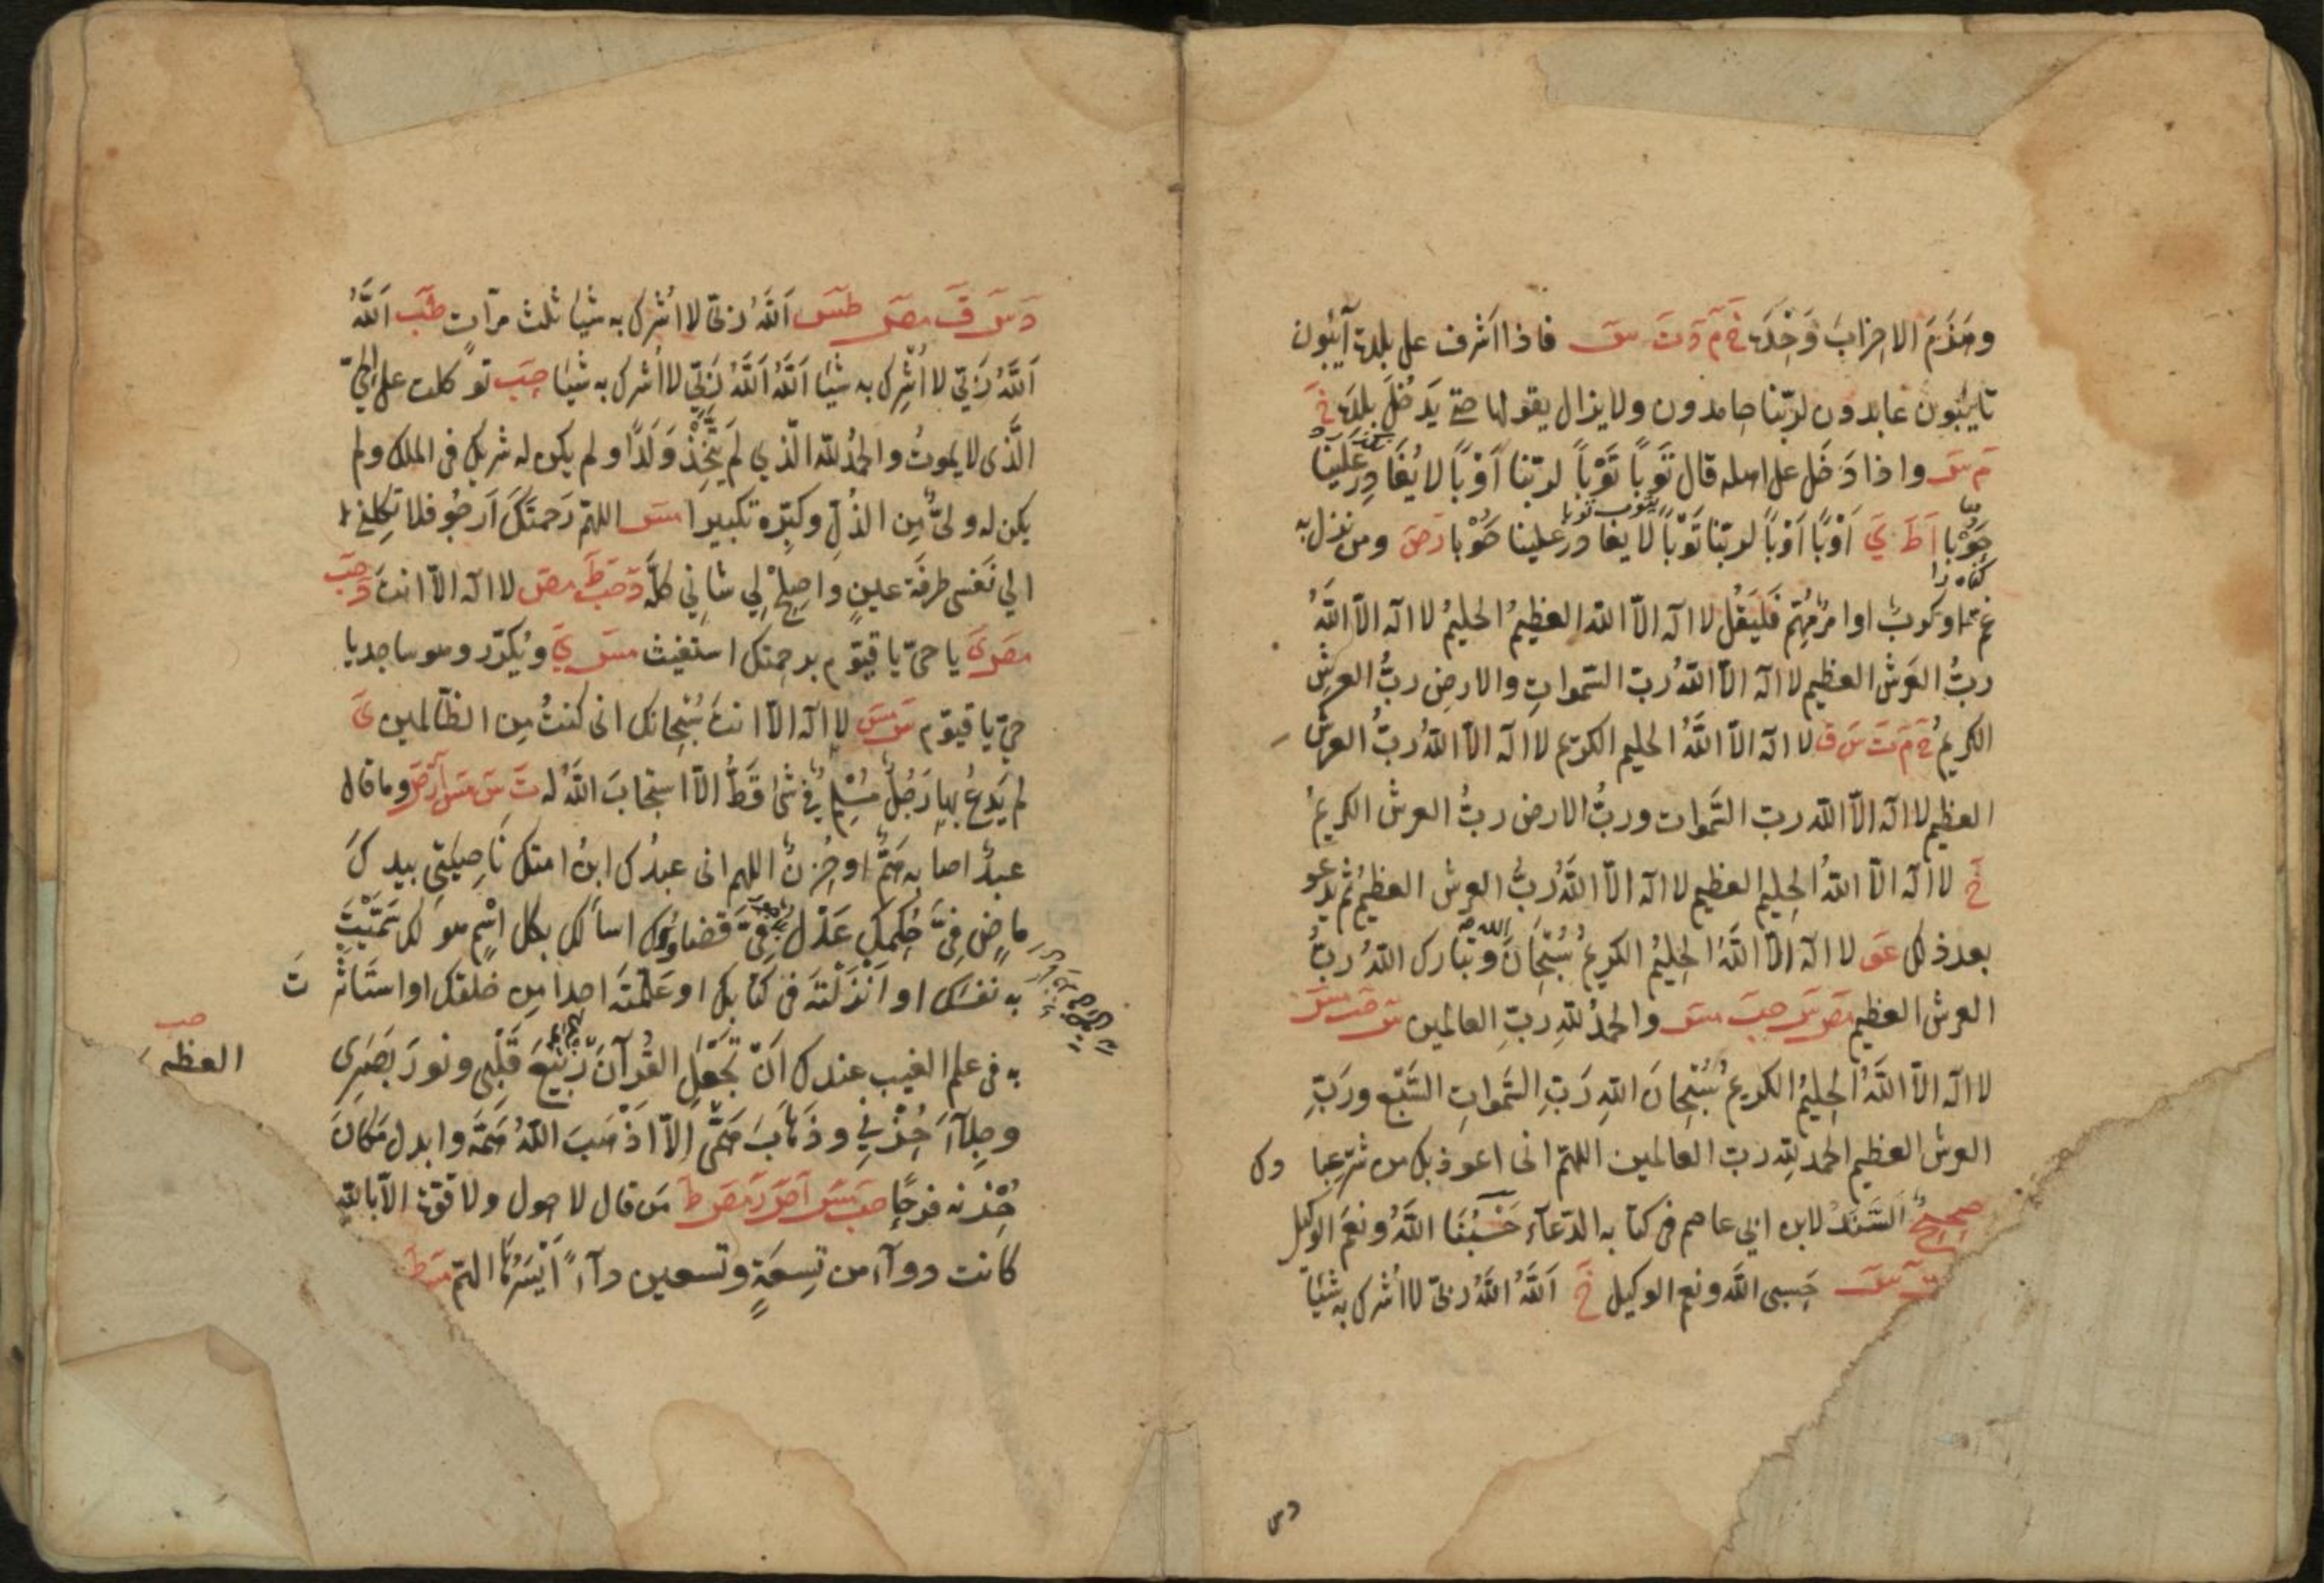 وهزم الاحزاب وَحْدَه خ م د ت س فاذا اشرف على بلده آيبُون
تايبُون عابدون لربّنا حامدون ولا يزال يقولها حتى يدخُلَ بلدَه خ
م س واذا دَخل على اهله قال تَوباً تَوْباً لربّنا أوْباً لا يُغَادِر عَلَينا
حَوْبا أ ط ي أوْباً أوْباً لربّنا تَوْباً لا يغادر علينا حَوْبا ر ص ومن نزل به
غمّ او كربٌ او امرٌ مُهِمّ فَليَقُل لا اله الّا الله العظيمُ الحليمُ لا اله الّا اللهُ
ربُّ العَرش العظيم لا اله الّا اللهُ ربّ السّموات والارض ربُّ العرش
الكريمُ خ م ت س ق لا اله الّا اللهُ الحليم الكريم لا اله الّا اللهُ ربُّ العرش
العظيم لا اله الّا الله ربّ السَّموات وربُّ الارض ربُّ العرش الكريمُ
خ لا اله الّا اللهُ الحليم العظيم لا اله الّا اللهُ ربُّ العرش العظيمُ ثم يدعو
بعد ذلك عَو لا اله الّا اللهُ الحليمُ الكريمُ سُبْحانَ الله وتبارك اللهُ ربُّ
العرش العظيم مص س حب مس والحمدُ للهِ ربِّ العالمين س حب مس
لا اله الّا اللهُ الحليمُ الكريمُ سُبْحانَ اللهِ رَبِّ السَّمواتِ السَّبْع ورَبِّ
العرش العظيم الحمد للهِ ربّ العالمين اللهمّ انى اعوذ بك من شرّ عبادك
صحيحُ السَّنَد لابن ابي عاصم فى كتابه الدّعآء حَسْبُنَا اللهُ ونِعمَ الوكيل
خ س حَسبى الله ونعم الوكيل خ اَللهُ اَللهُ ربّى لا اُشرك به شيئًا
د س ق مص طس اَللهُ ربّى لا اُشرك به شيئا ثلث مرّات طب اَللهُ
اَللهُ رَبّي لا اُشرِك به شيئا اَللهُ اَللهُ رَبّي لا اُشرك به شيئا حب توكلت على الحىّ
الَّذى لا يموتُ والحمدُ لله الّذي لَم يَتَّخِذْ وَلَدًا ولم يكن له شريك فى الملك ولم
يكن له وليٌّ مِن الذُلِّ وكبّره تكبيرا مس اللهمّ رَحمتَكَ اَرجُو فلا تكلنى
الي نَفسى طرفَةَ عينٍ واصلِحْ لِي شانِي كلَّه د حب ط مص لا اله الّا انت د حب
مص ى يا حىّ يا قيّوم برحمتك استغيث مس ي ويُكرّر وهو ساجد يا
حىّ يا قيّوم س مس لا اله الّا انتَ سُبْحانك انى كنتُ مِن الظّالمين ى
لم يَدعُ بها رَجُلٌ مُسْلِمٌ فِى شئ قَطُّ الّا استجابَ اللهُ له ت س مس أ ر ص وما قال
عبدٌ اصابه هَمٌّ او حُزنٌ اللهم انى عبدُك ابنُ امتك نَاصِيَتِي بيدك
مَاضٍ فِىَّ حُكمك عَدْلٌ فِىَّ قضاؤك اسألك بكل اسْمٍ هو لك سَمَّيتَ
به نفسَك او اَنْزَلْتَه فى كتابك او عَلَّمتَه احداً من خلقك او استَأثَرْتَ
به فى علم الغيب عندك اَنْ تَجْعَلَ القُرآنَ العظيم رَبيعَ قَلْبِى ونورَ بَصَرِى
وجِلآءَ حُزْنِي وذَهَابَ هَمّى اِلّا اَذْهَبَ اللهُ هَمَّه وابدل مَكانَ
حُزْنه فرحًا حب مس أ ص ر مص ط مَن قال لا حول ولا قوّة الّا بالله
كانت دوآء من تِسعَةٍ وتسعين دآءً اَيْسَرُهَا الهمّ مس ط